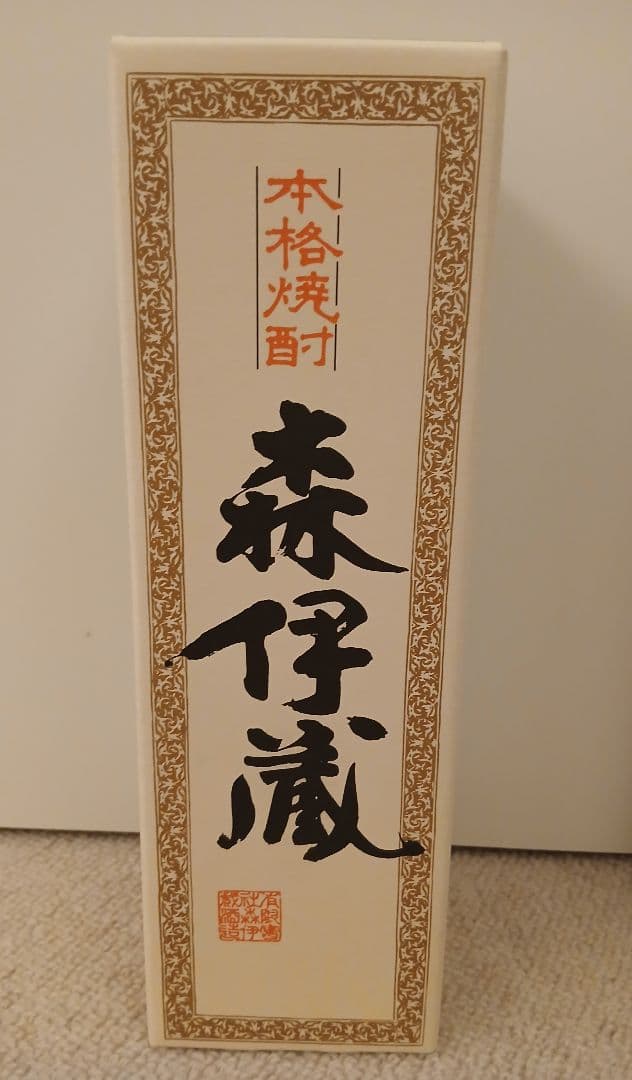 本格焼酎
森伊蔵
有限会社森伊蔵酒造